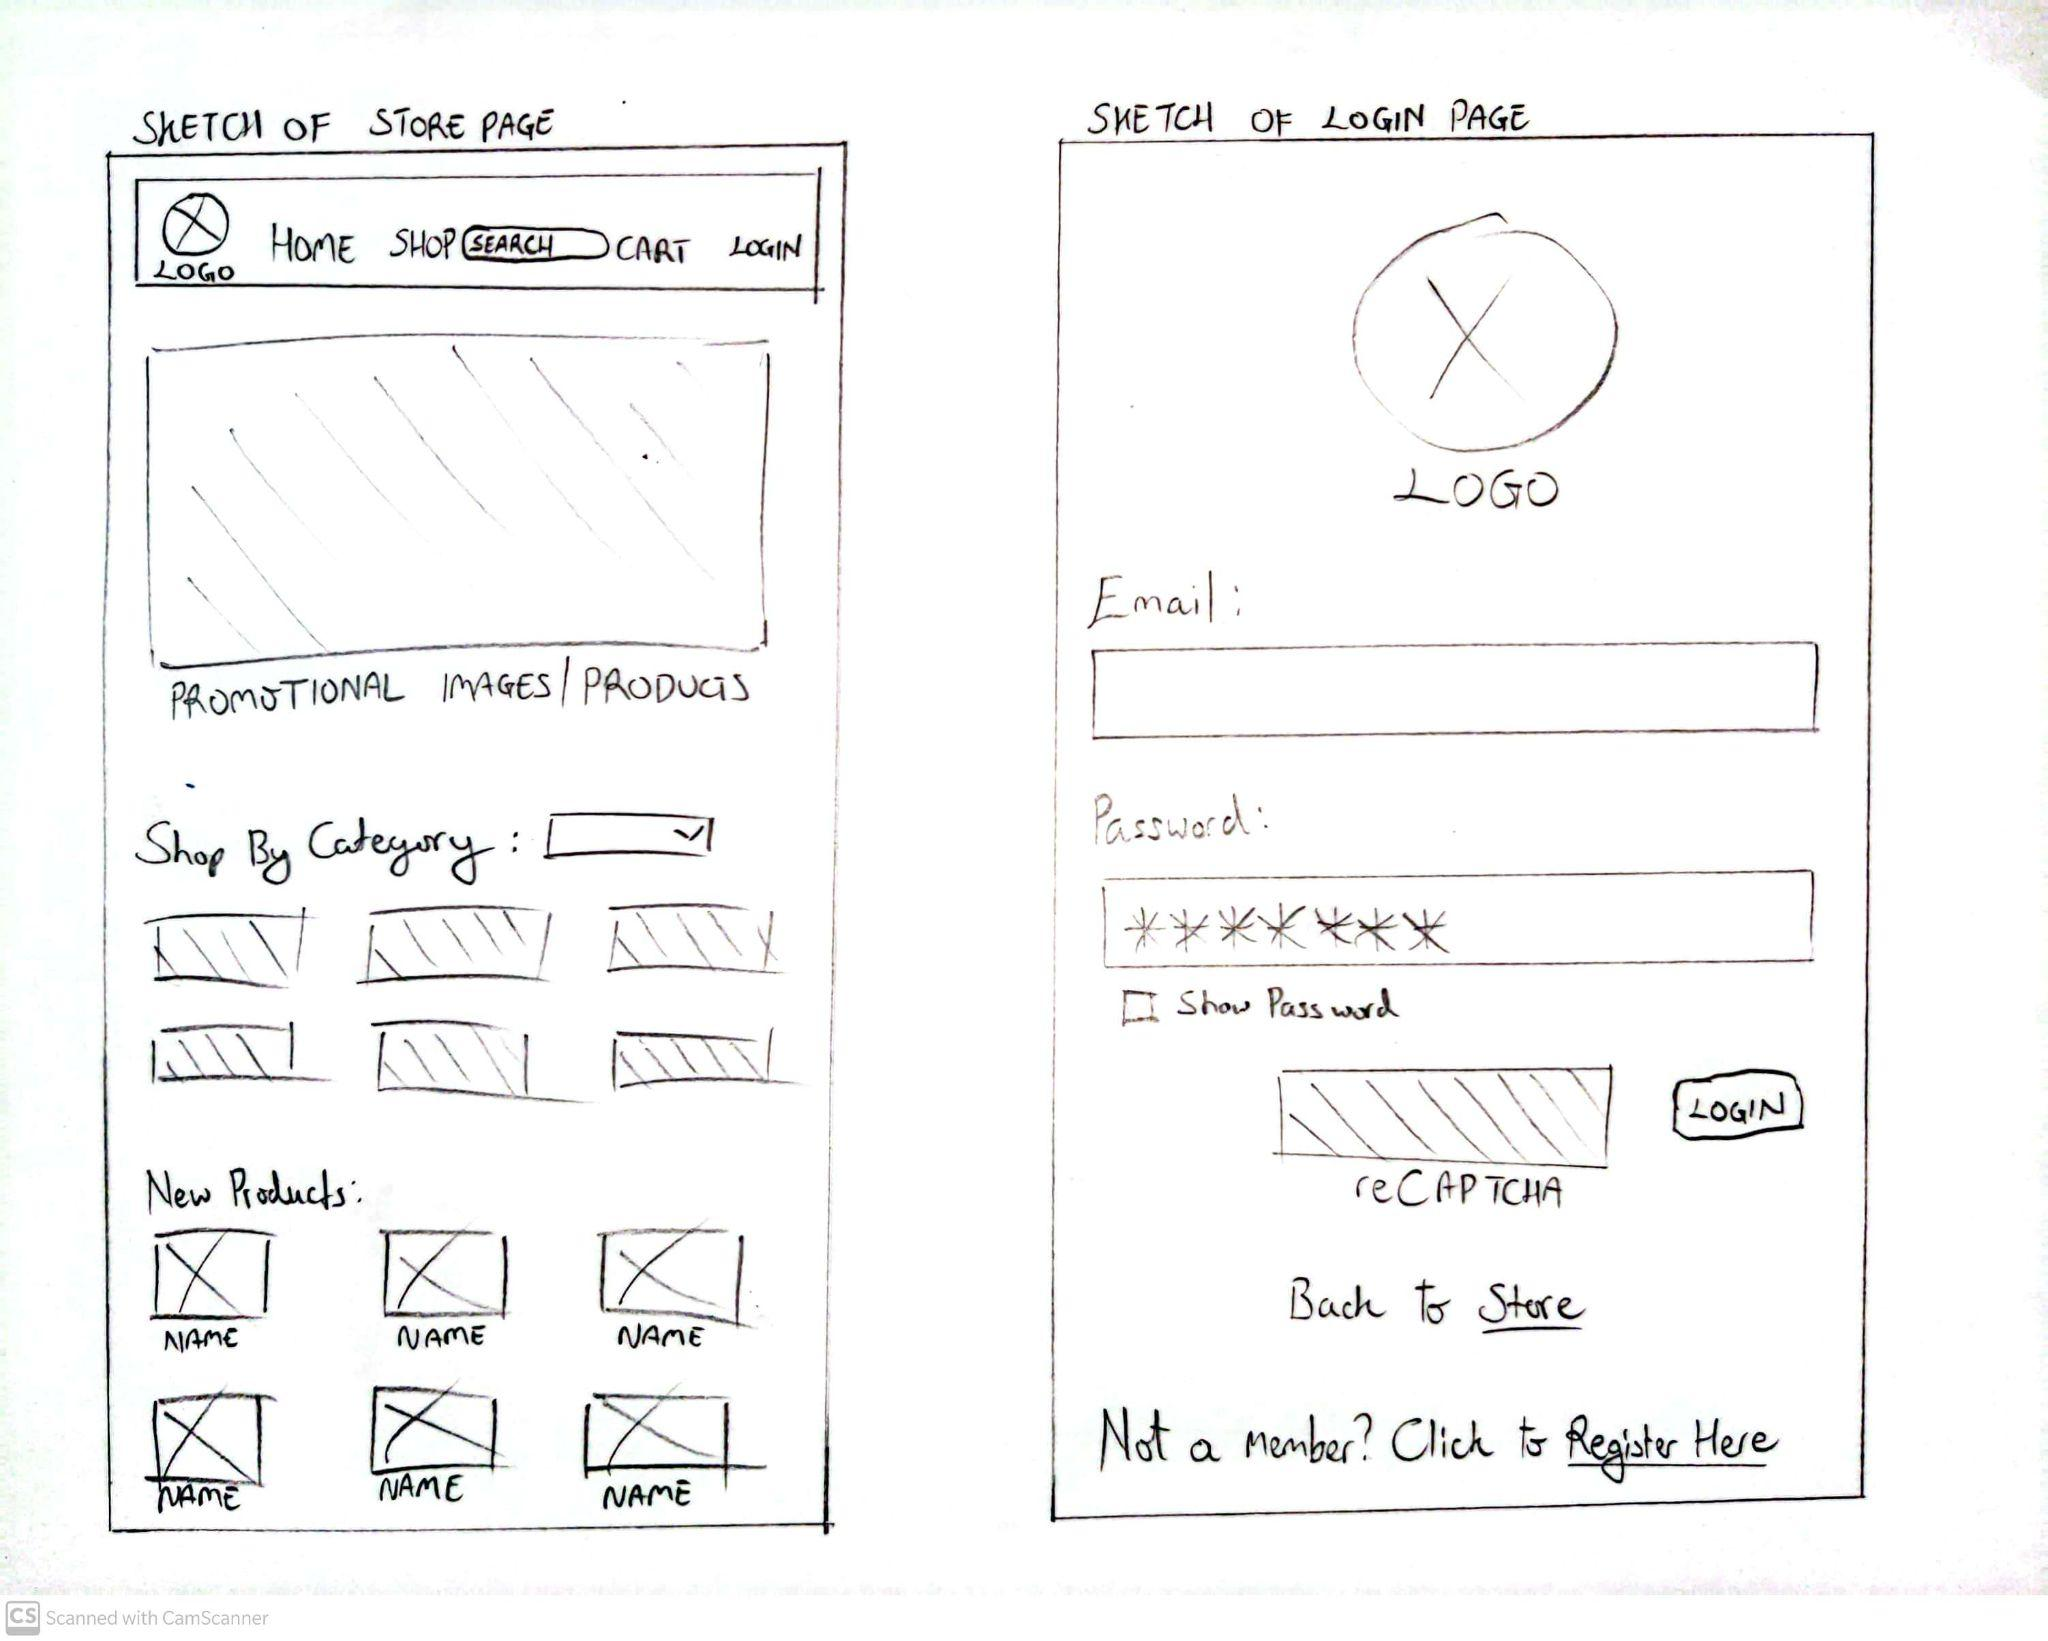 SKETCH OF STORE PAGE
LOGO HOME SHOP SEARCH CART LOGIN
PROMOTIONAL IMAGES/PRODUCTS
Shop By Category :
New Products:
NAME NAME NAME
NAME NAME NAME
SKETCH OF LOGIN PAGE
LOGO
Email :
Password:
*******
Show Password
LOGIN
reCAPTCHA
Back to Store
Not a member? Click to Register Here
CS Scanned with CamScanner